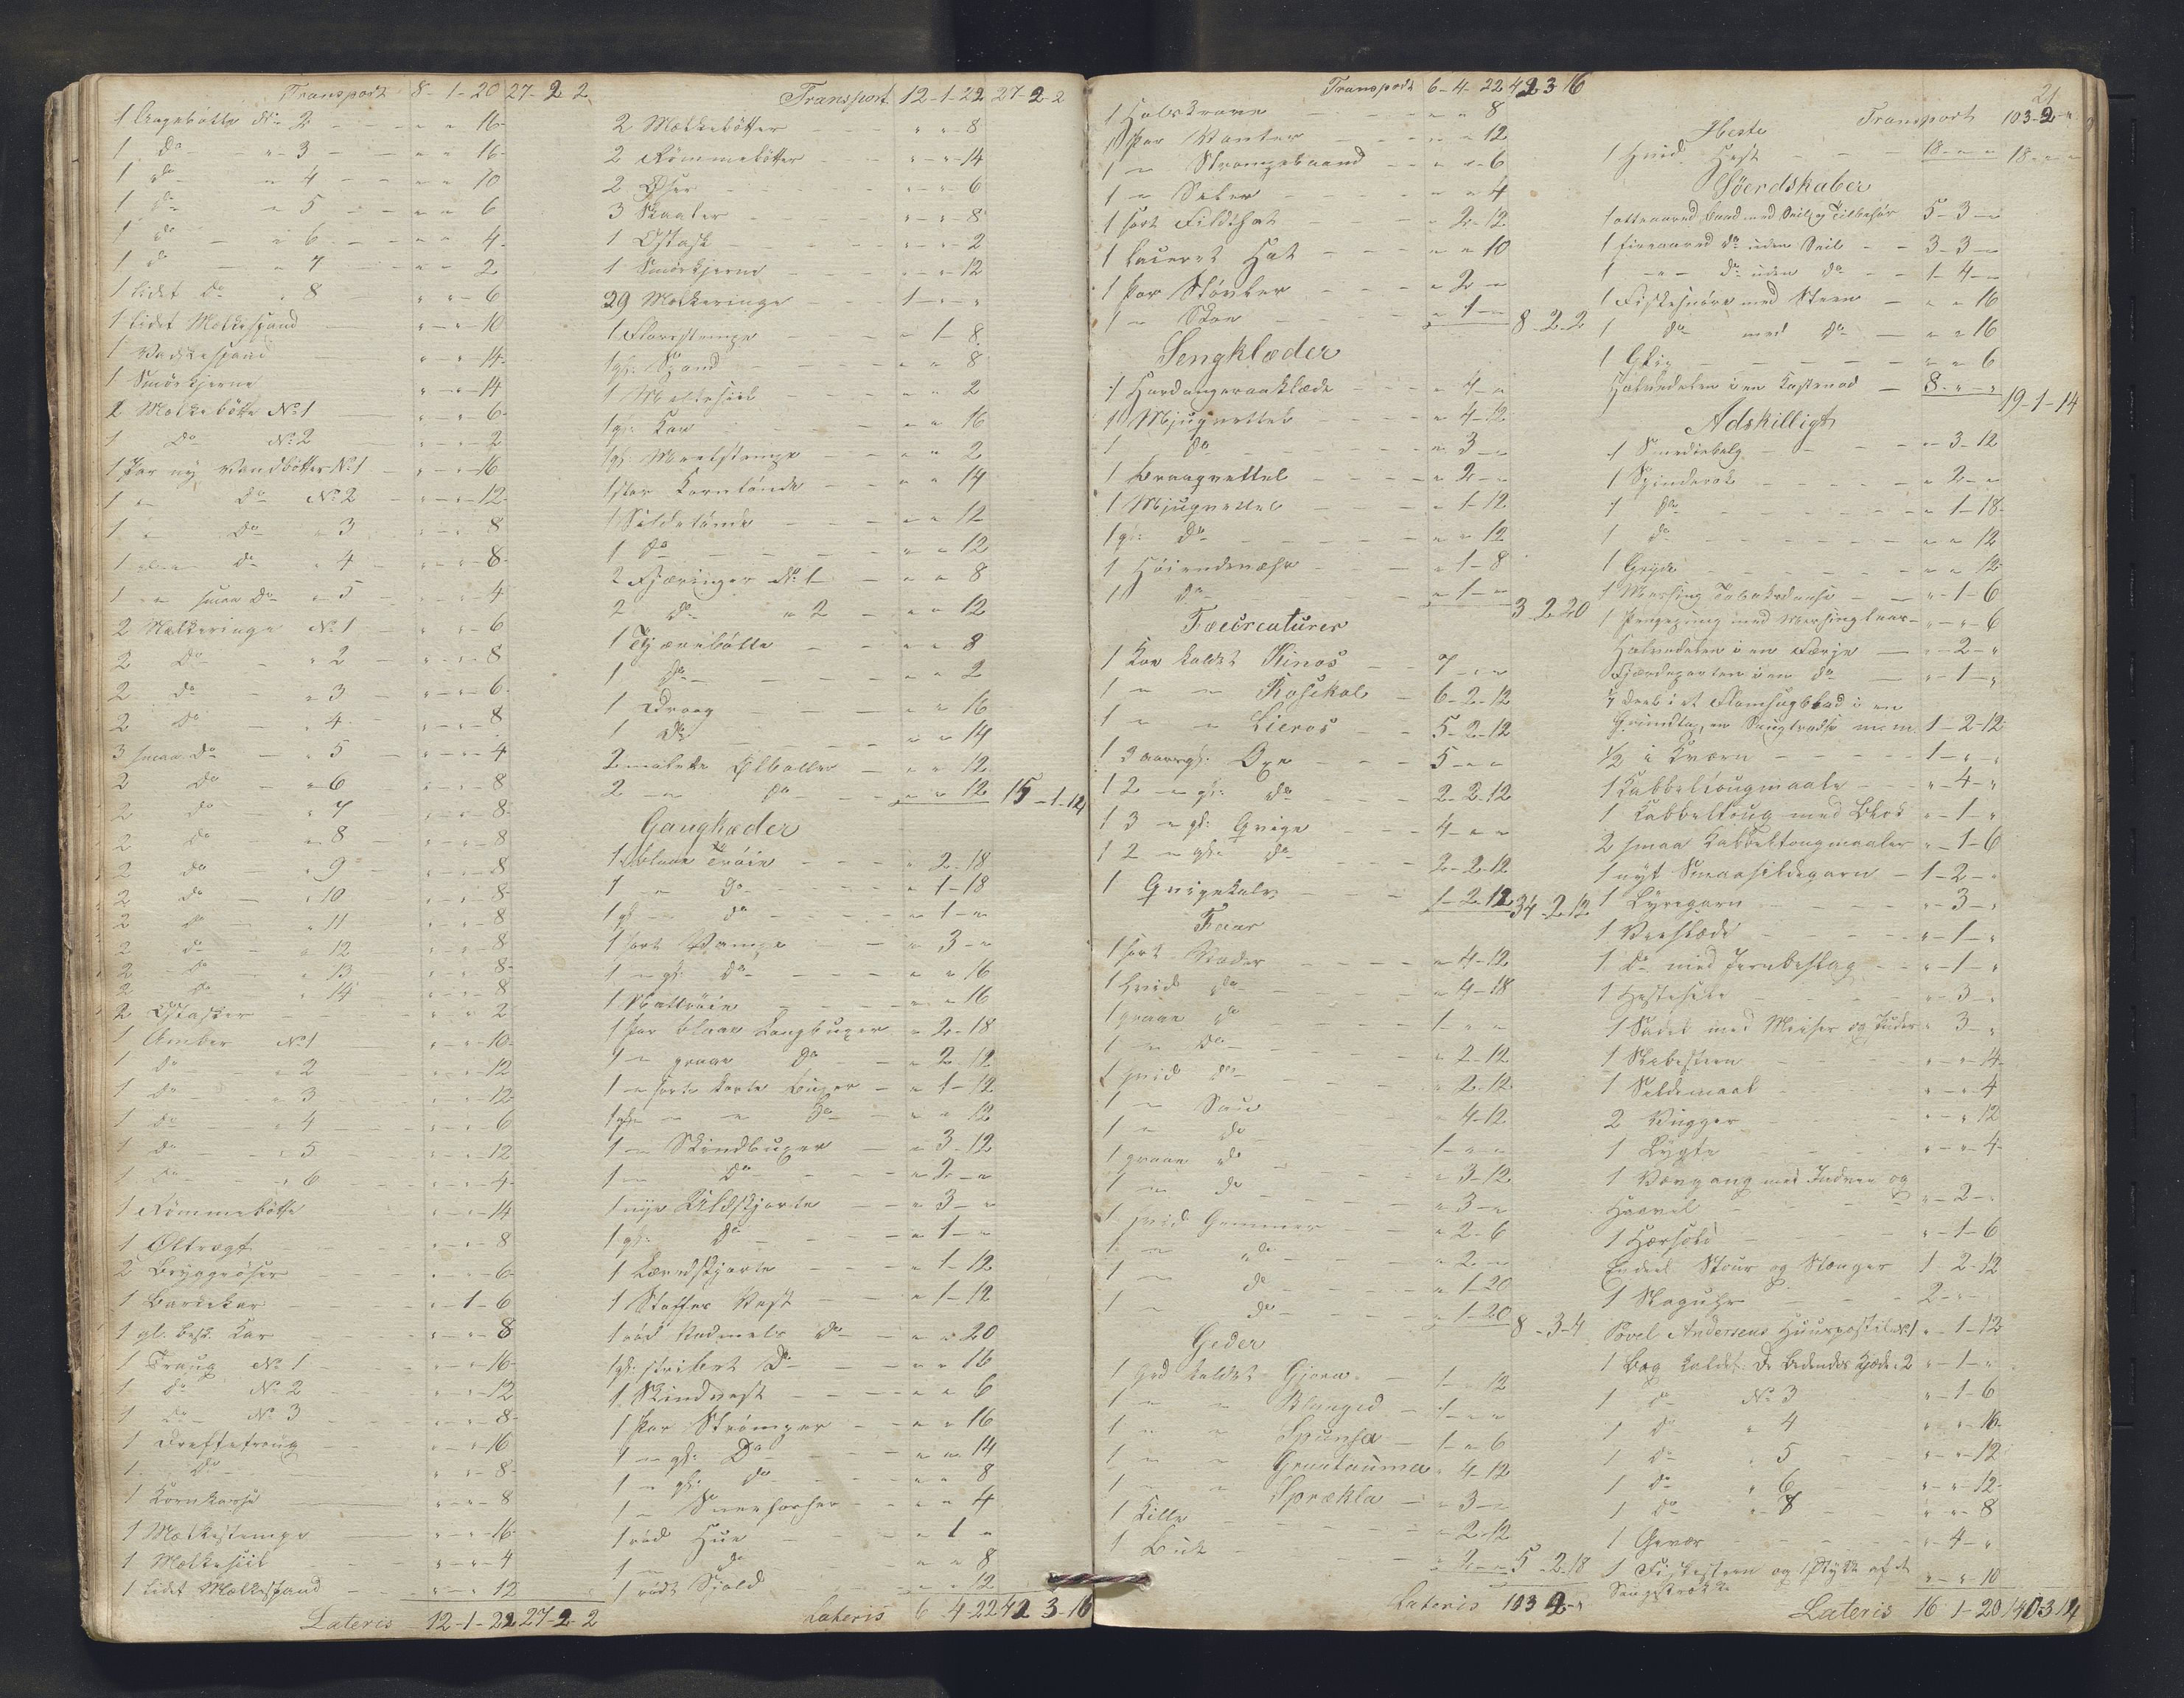 Transport 8-1-20 27-2-2
1 Bagebøtte No 2 - - " " 16
1 do " 3 - - " " 16
1 do " 4 - - " " 10
1 do " 5 - - " " 6
1 do " 6 - - " " 4
1 do " 7 - - " " 2
1 lidet do " 8 " - " - 6
1 lidet Melkespand " - " - 10
1 Vadskespand " - " - 14
1 Smørkjerne " - " - 14
1 Melkebøtte No 1 " - " - 6
1 Do No 2 " - " - 2
1 Par ny Vandbøtter No 1 " - " - 16
1 " Do No 2 " - " - 12
1 " Do " 3 " - " - 8
1 Do " 4 " - " - 8
1 " smaa Do " 5 " - " - 4
2 Mælkeringe No 1 " - " - 6
2 Do " 2 " - " - 8
2 do " 3 " - " - 6
2 do " 4 " - " - 8
3 smaa do " 5 " - " - 4
2 do " 6 " - " - 8
2 do " 7 " - " - 8
2 do " 8 " - " - 8
2 do " 9 " - " - 8
2 do " 10 " - " - 8
2 do " 11 " - " - 8
2 do " 12 " - " - 8
2 do " 13 " - " - 8
2 do " 14 " - " - 8
2 Ostasker " " 2
1 Amber No 1 " - " - 10
1 do " 2 " - " - 12
1 do " 3 " - " - 12
1 do " 4 " - " - 6
1 do " 5 " - " - 12
1 do " 6 " - " - 4
1 Rømmebøtte " - " - 14
1 Øltragt " - " - 8
2 Bryggeøser " - " - 6
1 Barkekar " - 1 - 6
1 gl. besk. Kar " - " - 8
1 Traug No 1 " - " - 16
1 do No 2 " - " - 12
1 do No 3 " - " - 8
1 Drøftetraug " - " - 16
1 Do " - " - 8
1 Kornkasse " - " - 8
1 Mælkestampe " - " - 16
1 Mælkesiil " - " - 4
1 lidet Mælkespand " - " - 12
Lateris 12-1-22 27-2-2
Transport 12-1-22 27-2-2
2 Mælkebøtter " " - 8
2 Rømmebøtter " - " - 14
2 Øser " - " - 6
3 Skaaler " - " - 8
1 Ostask " - " - 2
1 Smørkjerne " - " - 12
29 Melkeringe 1 - " - "
1 " 1 - 8
1 gl. Spand " " 8
1 Meltesiil " " 2
1 gl. Kar " " 16
1 gl. " " 2
1 stor Korntønde " " 14
1 Sildetønde " " 12
1 do " " 12
2 Fjæringer No 1 " " 8
2 do " 2 " " 12
1 Tjærebøtte " " 8
1 Do " " 2
1 Draag " " 16
1 Do " " 14
2 malede Ølboller " " 12
2 " do " " 12 15-1-14
Gangklæder
1 blaae Trøie " 2-18
1 " do " 1-18
1 gl " do " 1 - "
1 sort Vampe " 3 - "
1 " gl. do " " 16
1 Nattrøie " " 16
1 Par blaae Langbuxer " 2-18
1 " graae do " 2-12
1 " sorte korte Buxer " 1-12
1 gl. " " do " " 12
1 " Skindbuxer " 3-12
1 " do " 2 - "
1 nye Uldskjorte " 3 - "
1 gl. do " 1 - "
1 Lærredskjorte " 1-12
1 Stoffes Vest " 1-12
1 rød Vadmels do " " 20
1 gl. stribet Do " " 16
1 Skindvest " " 6
1 Par Strømper " " 16
1 " gl. Do " " 14
1 " gl. do " " 8
1 " " " 4
1 rød Hue " 1 "
1 " do " " 8
1 rødt Sjold " " 12
Lateris 6-4-22 42 3-16
Transport 6-4-22 42 3 16
1 Halskrave " " 8
1 Par Vanter " " 12
1 " Strømpebaand " " 6
1 " Seler " " 4
1 sort Filthat " 2-12
1 laceret Hat " " 10
1 Par Støvler " 2 - "
1 " Skoe " 1 - " 8-2-2
Sengklæder
1 Hardangeraaklæde " 4 - "
1 Mjugvettel " 4-12
1 do " 3 - "
1 Braagvettel " 2 - "
1 Mjugvettel " 1-12
1 gl. do " " 12
1 Høiendevær " 1-8
1 do " 1 - " 3-2-20
Fæecreaturer
1 Koe kaldt Kinos 7 - " "
1 " " Rosikol 6-2-12
1 " " Lieros 5-2-12
1 3 aargl. Oxe 5 - " "
1 2 " gl. do 2-2-12
1 3 " gl. Qvige 4 - " "
1 2 " gl. do 2-2-12
1 Qvigekalv 1-2-12 34-2-12
Faar
1 sort Væder " 4-12
1 hvid do " 4-18
1 graae do 1 - " "
1 " do " 2-12
1 hvid do " 2-12
1 " Sau " 4-12
1 " do 1 - " "
1 graae do " 3-12
1 " do " 3 - "
1 hvid Gemmer " 2-6
1 " do " 2 - "
1 " do " 1-20
1 " do " 1-20 8-3-4
Geder
1 Ged kaldet Gjøra 1 - " 12
1 " " Blanged 1 - " "
1 " " Spunsa 1 - " 6
1 " " Graatauma " 4-12
1 " " Sprækla " 3 - "
1 Kille " 2-12
1 Buk " 2 - " 5-2-18
Lateris 103 2 - "
21
Transport 103-2 - "
Heste
1 hvid Hest 18 - " " 18 - " "
Søeredskaber
1 ottearred Baad med Seil og Tilbehør 5-3 - "
1 fireaared do uden Seil 3-3 - "
1 - " - do uden do 1-4 - "
1 Fiskesnøre med Steen " " 16
1 do med do " " 16
1 " " 6
Halvedelen i en Kastenod 8 - " - " 19-1-14
Adskilligt
1 Smediebelg " 3-12
1 Spinderok " 2 - "
1 do " 1-18
1 do " " 12
1 Gryde " " 12
1 Messing Tobaksdaase " 1-6
1 Pengepung med Messinglaas " - " 6
Halvedelen i en Færje " 2 - "
Fjerdeparten i en do " 1 - "
deel i et Flomsagblad i en
m. m. 1-2-12
1/2 i Kværn 1 - " - "
1 Kabbeltougmaale " 4 - "
1 Kabbeltoug med Blok " 1 - "
2 smaa Kabbeltougmaaler " 1-6
1 nyt Smaasildegarn 1-2 - "
1 Lyregarn " 3 - "
1 Veeslæde " 1 - "
1 Do med Jernbeslag " 1 - "
1 Hestesele " 3 - "
1 Sadel med Meiser og Puder " 3 - "
1 Slibesteen " " 14
1 Sildemaal " " 4
2 Vugger " " 12
1 Lygte " " 4
1 Vævgang med Indree og
Haavel " 2 - "
1 Hærsold " 1-6
Endeel Staur og Stænger 1 2-12
1 Slaguhr 2 - " - "
Povel Andersens Huuspostil No 1 " 1-12
1 Bog kaldet: De Bedendes Kjæde " 2 " 1 - "
1 do No 3 " 1-6
1 do " 4 " " 16
1 do " 5 " " 12
1 do " 6 " " 12
1 do " 8 " " 8
1 Gevær " 4 - "
1 Fiskesteen og 1 Stykke af et
" " 10
Lateris 16 1-20 140-3 14